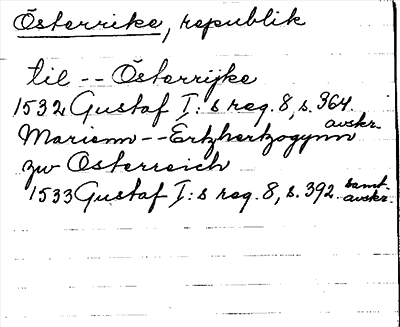 Österrike, republik
til -- Österrijke
1532 Gustaf I:s reg. 8, s. 364. avskr.
Marienn -- Ertzhertzogynn
zw Osterreich
1533 Gustaf I:s reg. 8, s. 392. samt. avskr.